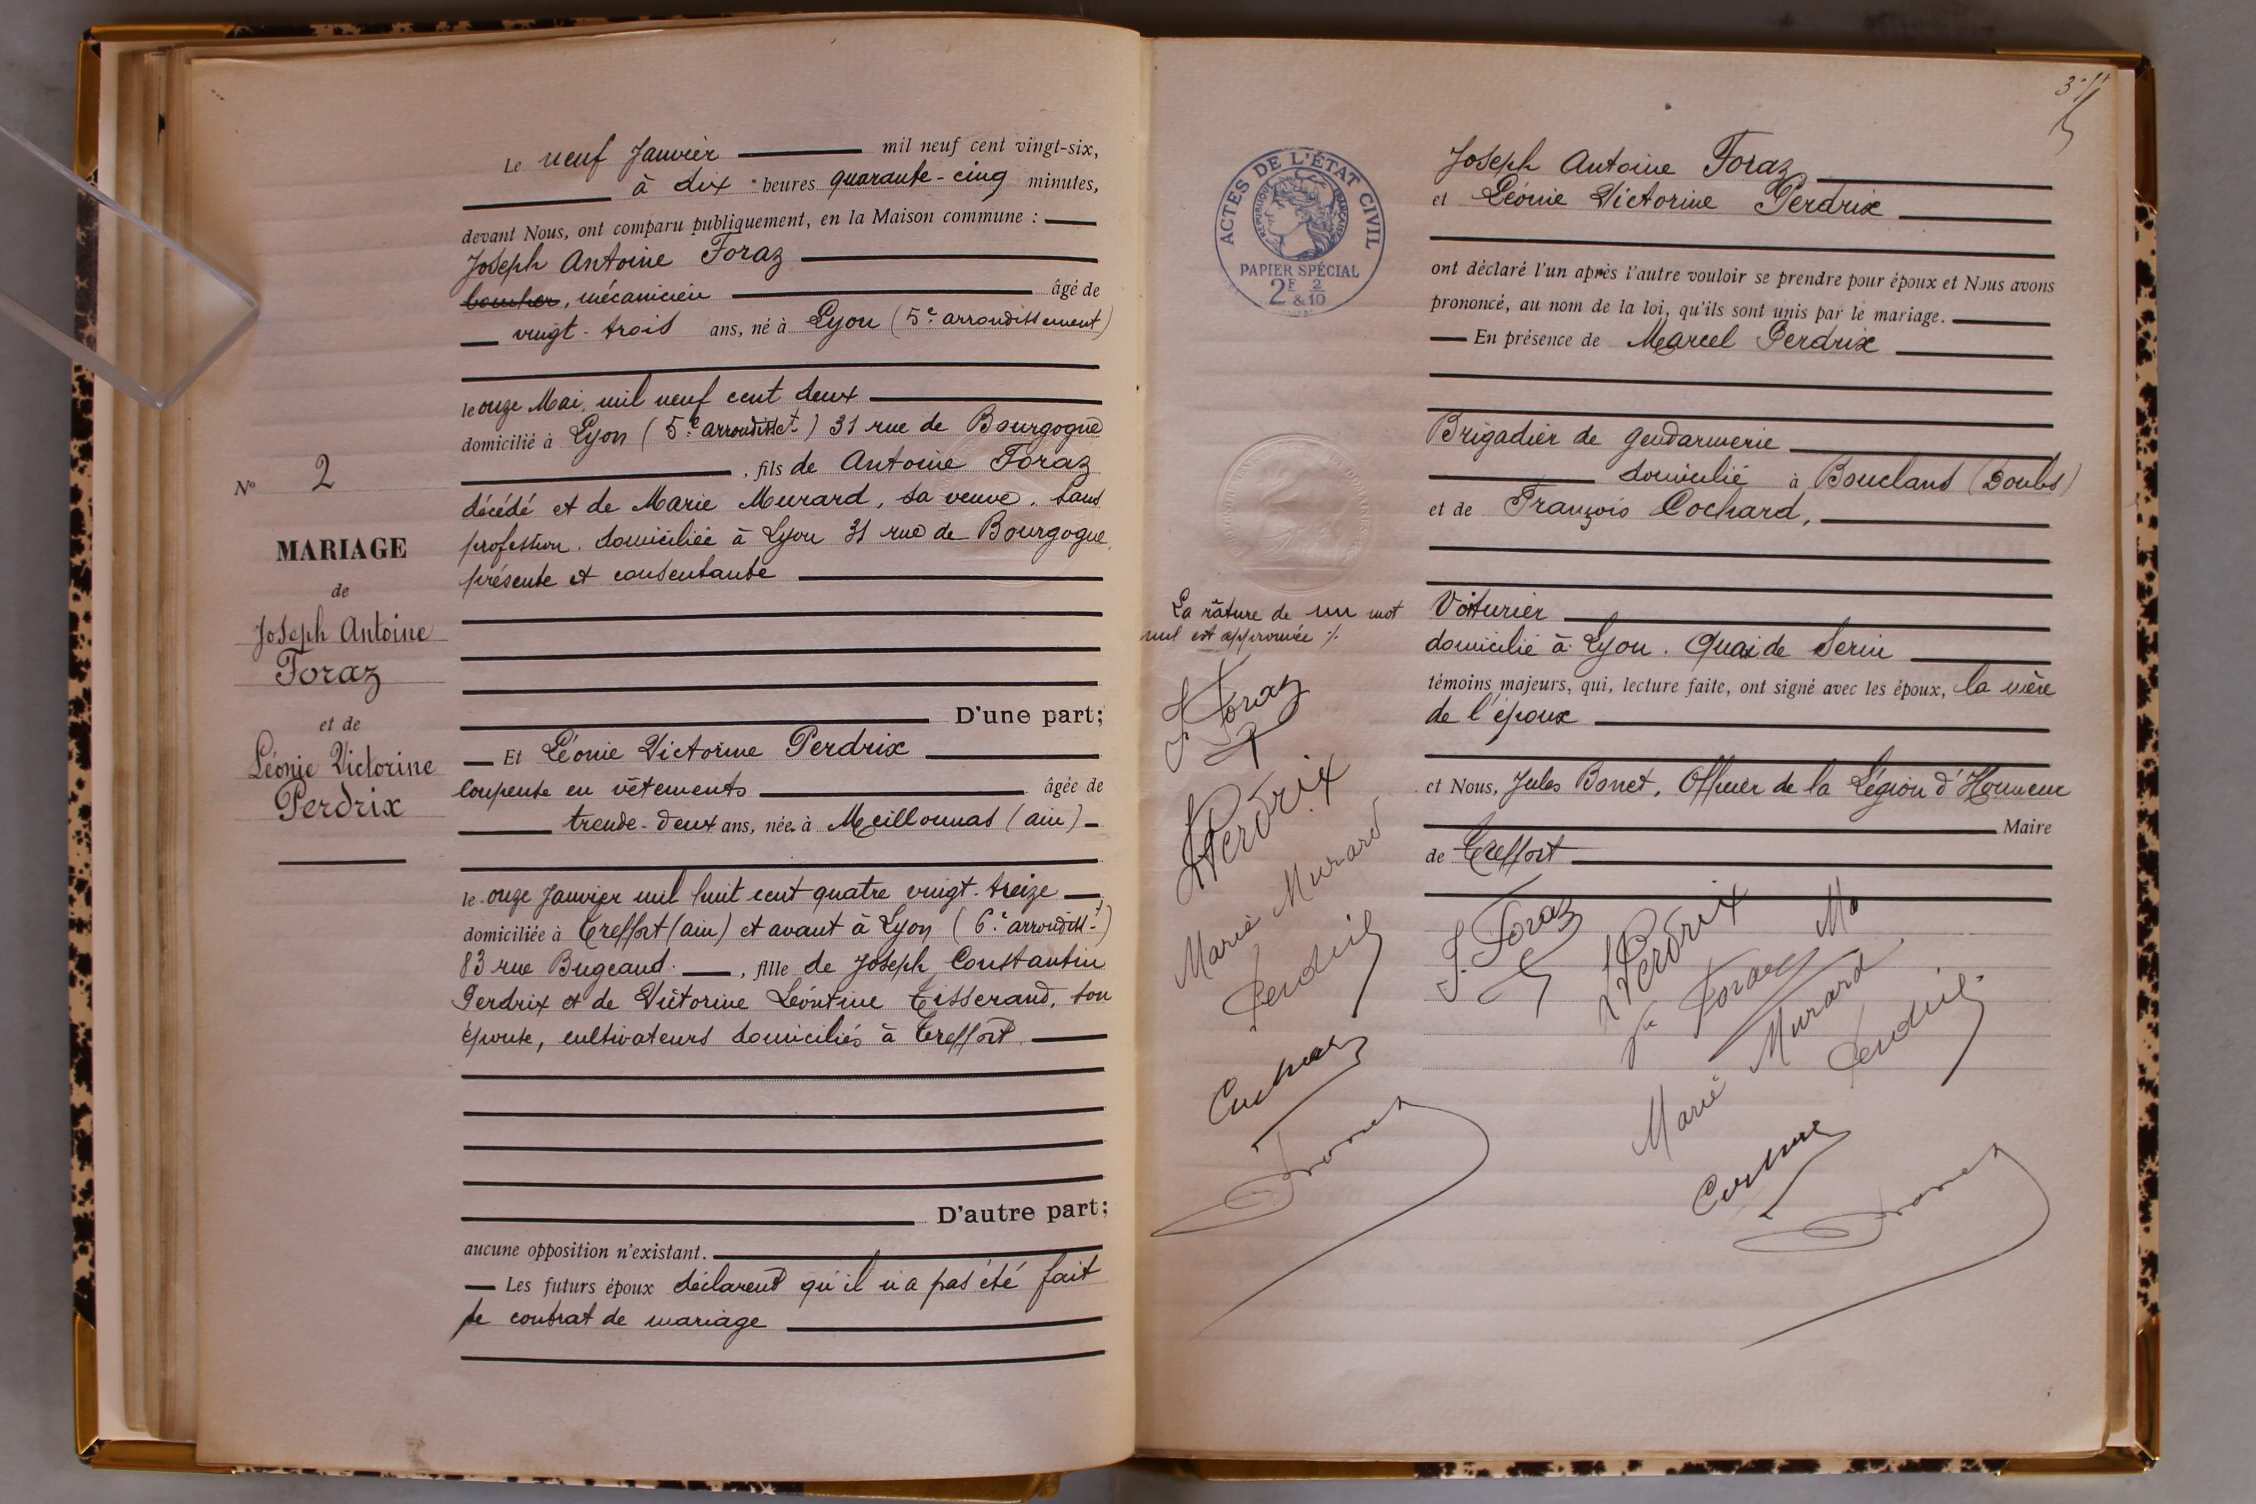 Le neuf Janvier mil neuf cent vingt-six,
à dix heures quarante-cinq minutes,
devant Nous, ont comparu publiquement, en la Maison commune :
Joseph Antoine Foraz
mécanicien âgé de
vingt-trois ans, né à Lyon (5e arrondissement)
le onze Mai mil neuf cent deux
domicilié à Lyon (5e arrondisst) 31 rue de Bourgogne
, fils de Antoine Foraz
décédé et de Marie Murard, sa veuve, sans
profession, domiciliée à Lyon 31 rue de Bourgogne,
présente et consentante
D'une part;
Et Léonie Victorine Perdrix
Coupeuse en vêtements âgée de
trente-deux ans, née à Meillonnas (ain)
le onze Janvier mil huit cent quatre vingt-treize
domiciliée à Treffort (ain) et avant à Lyon (6e arrondisst)
83 rue Bugeaud, fille de Joseph Constantin
Perdrix et de Victorine Léontine Tisserand, son
épouse, cultivateurs domiciliés à Treffort
D'autre part;
aucune opposition n'existant.
Les futurs époux déclarent qu'il n'a pas été fait
de contrat de mariage
N° 2
MARIAGE
de
Joseph Antoine
Foraz
et de
Léonie Victorine
Perdrix
ACTES DE L'ÉTAT CIVIL
RÉPUBLIQUE FRANÇAISE
PAPIER SPÉCIAL
2F & 2/10
Joseph Antoine Foraz
et Léonie Victorine Perdrix
ont déclaré l'un après l'autre vouloir se prendre pour époux et Nous avons
prononcé, au nom de la loi, qu'ils sont unis par le mariage.
En présence de Marcel Perdrix
Brigadier de gendarmerie
domicilié à Bouclans (Doubs)
et de François Cochard,
Voiturier
domicilié à Lyon. Quai de Serin
témoins majeurs, qui, lecture faite, ont signé avec les époux, la mère
de l'époux
et Nous, Jules Bonet, Officier de la Légion d'Honneur
Maire
de Treffort
La râture de un mot
nul est approuvée ./.
J. Foraz
L Perdrix
Marie Murard
Perdrix
J. Foraz
L Perdrix
Ma
Foraz
Marie Murard
Perdrix